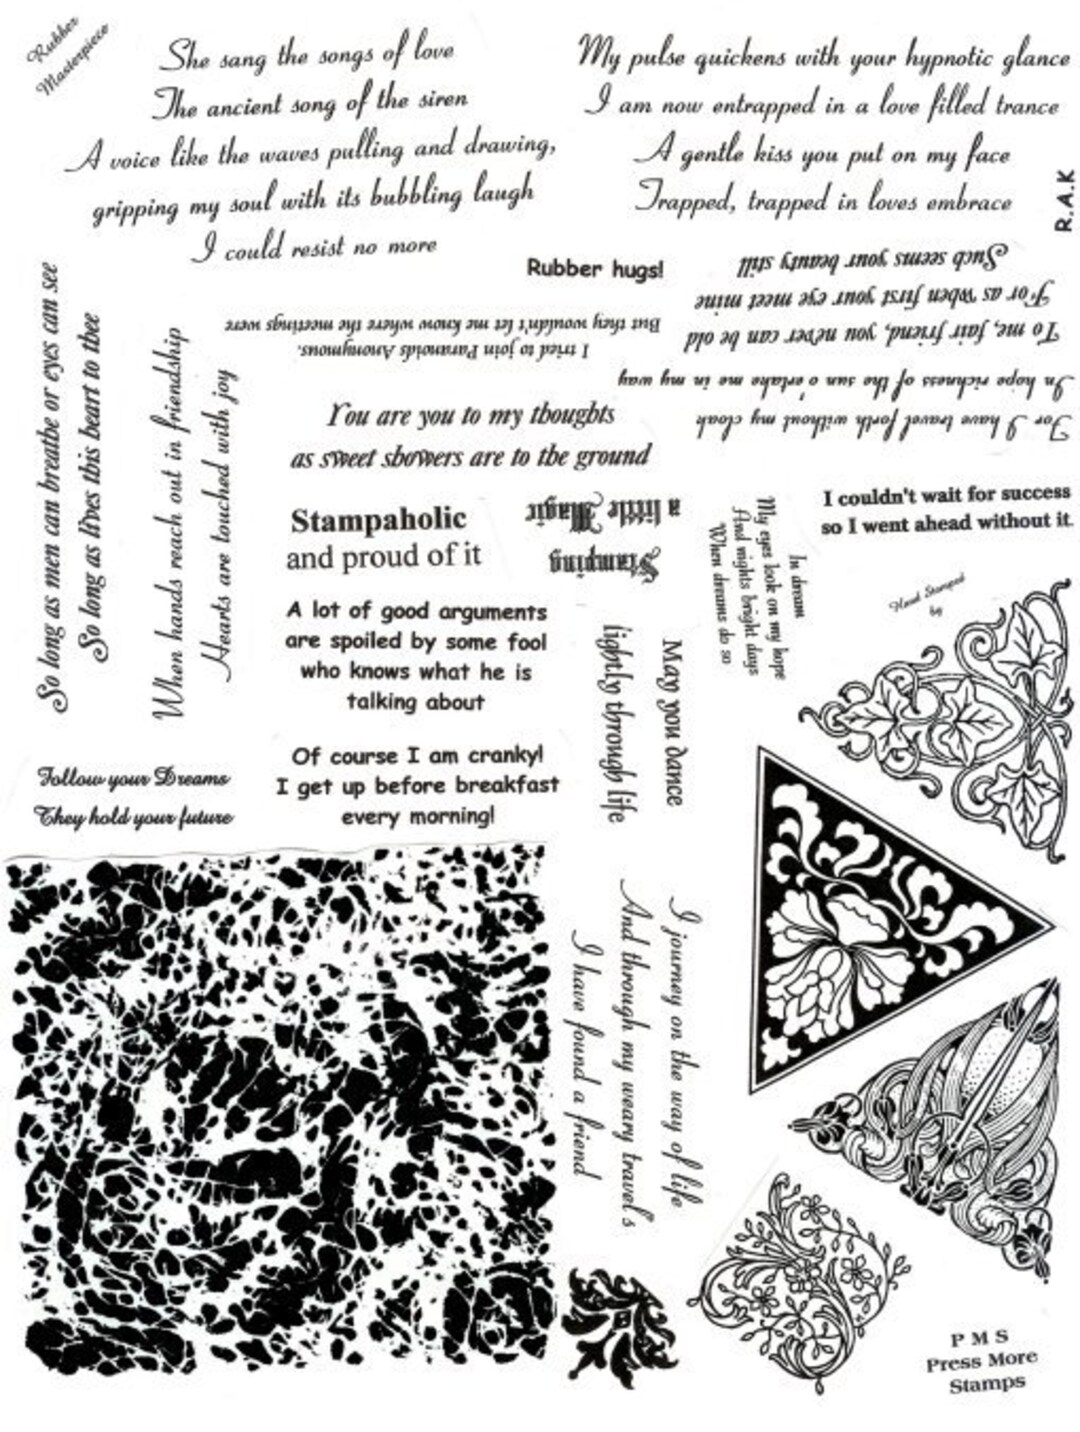 Rubber
Masterpiece
She sang the songs of love
The ancient song of the siren
A voice like the waves pulling and drawing,
gripping my soul with its bubbling laugh
I could resist no more
My pulse quickens with your hypnotic glance
I am now entrapped in a love filled trance
A gentle kiss you put on my face
Trapped, trapped in loves embrace
R.A.K
Rubber hugs!
To me, fair friend, you never can be old
For as when first your eye meet mine
Such seems your beauty still
I tried to join Paranoids Anonymous,
But they wouldn't let me know where the meetings were
For I have travel forth without my cloak
In hope richness of the sun o'ertake me in my way
So long as men can breathe or eyes can see
So long as lives this heart to thee
When hands reach out in friendship
Hearts are touched with joy
You are you to my thoughts
as sweet showers are to the ground
Stampaholic
and proud of it
Stamping
a little Magic
In dream
My eyes look on my hope
And nights bright days
When dreams do so
I couldn't wait for success
so I went ahead without it.
Hand Stamped
by
A lot of good arguments
are spoiled by some fool
who knows what he is
talking about
May you dance
lightly through life
Of course I am cranky!
I get up before breakfast
every morning!
Follow your Dreams
They hold your future
I journey on the way of life
And through my weary travel's
I have found a friend
P M S
Press More
Stamps